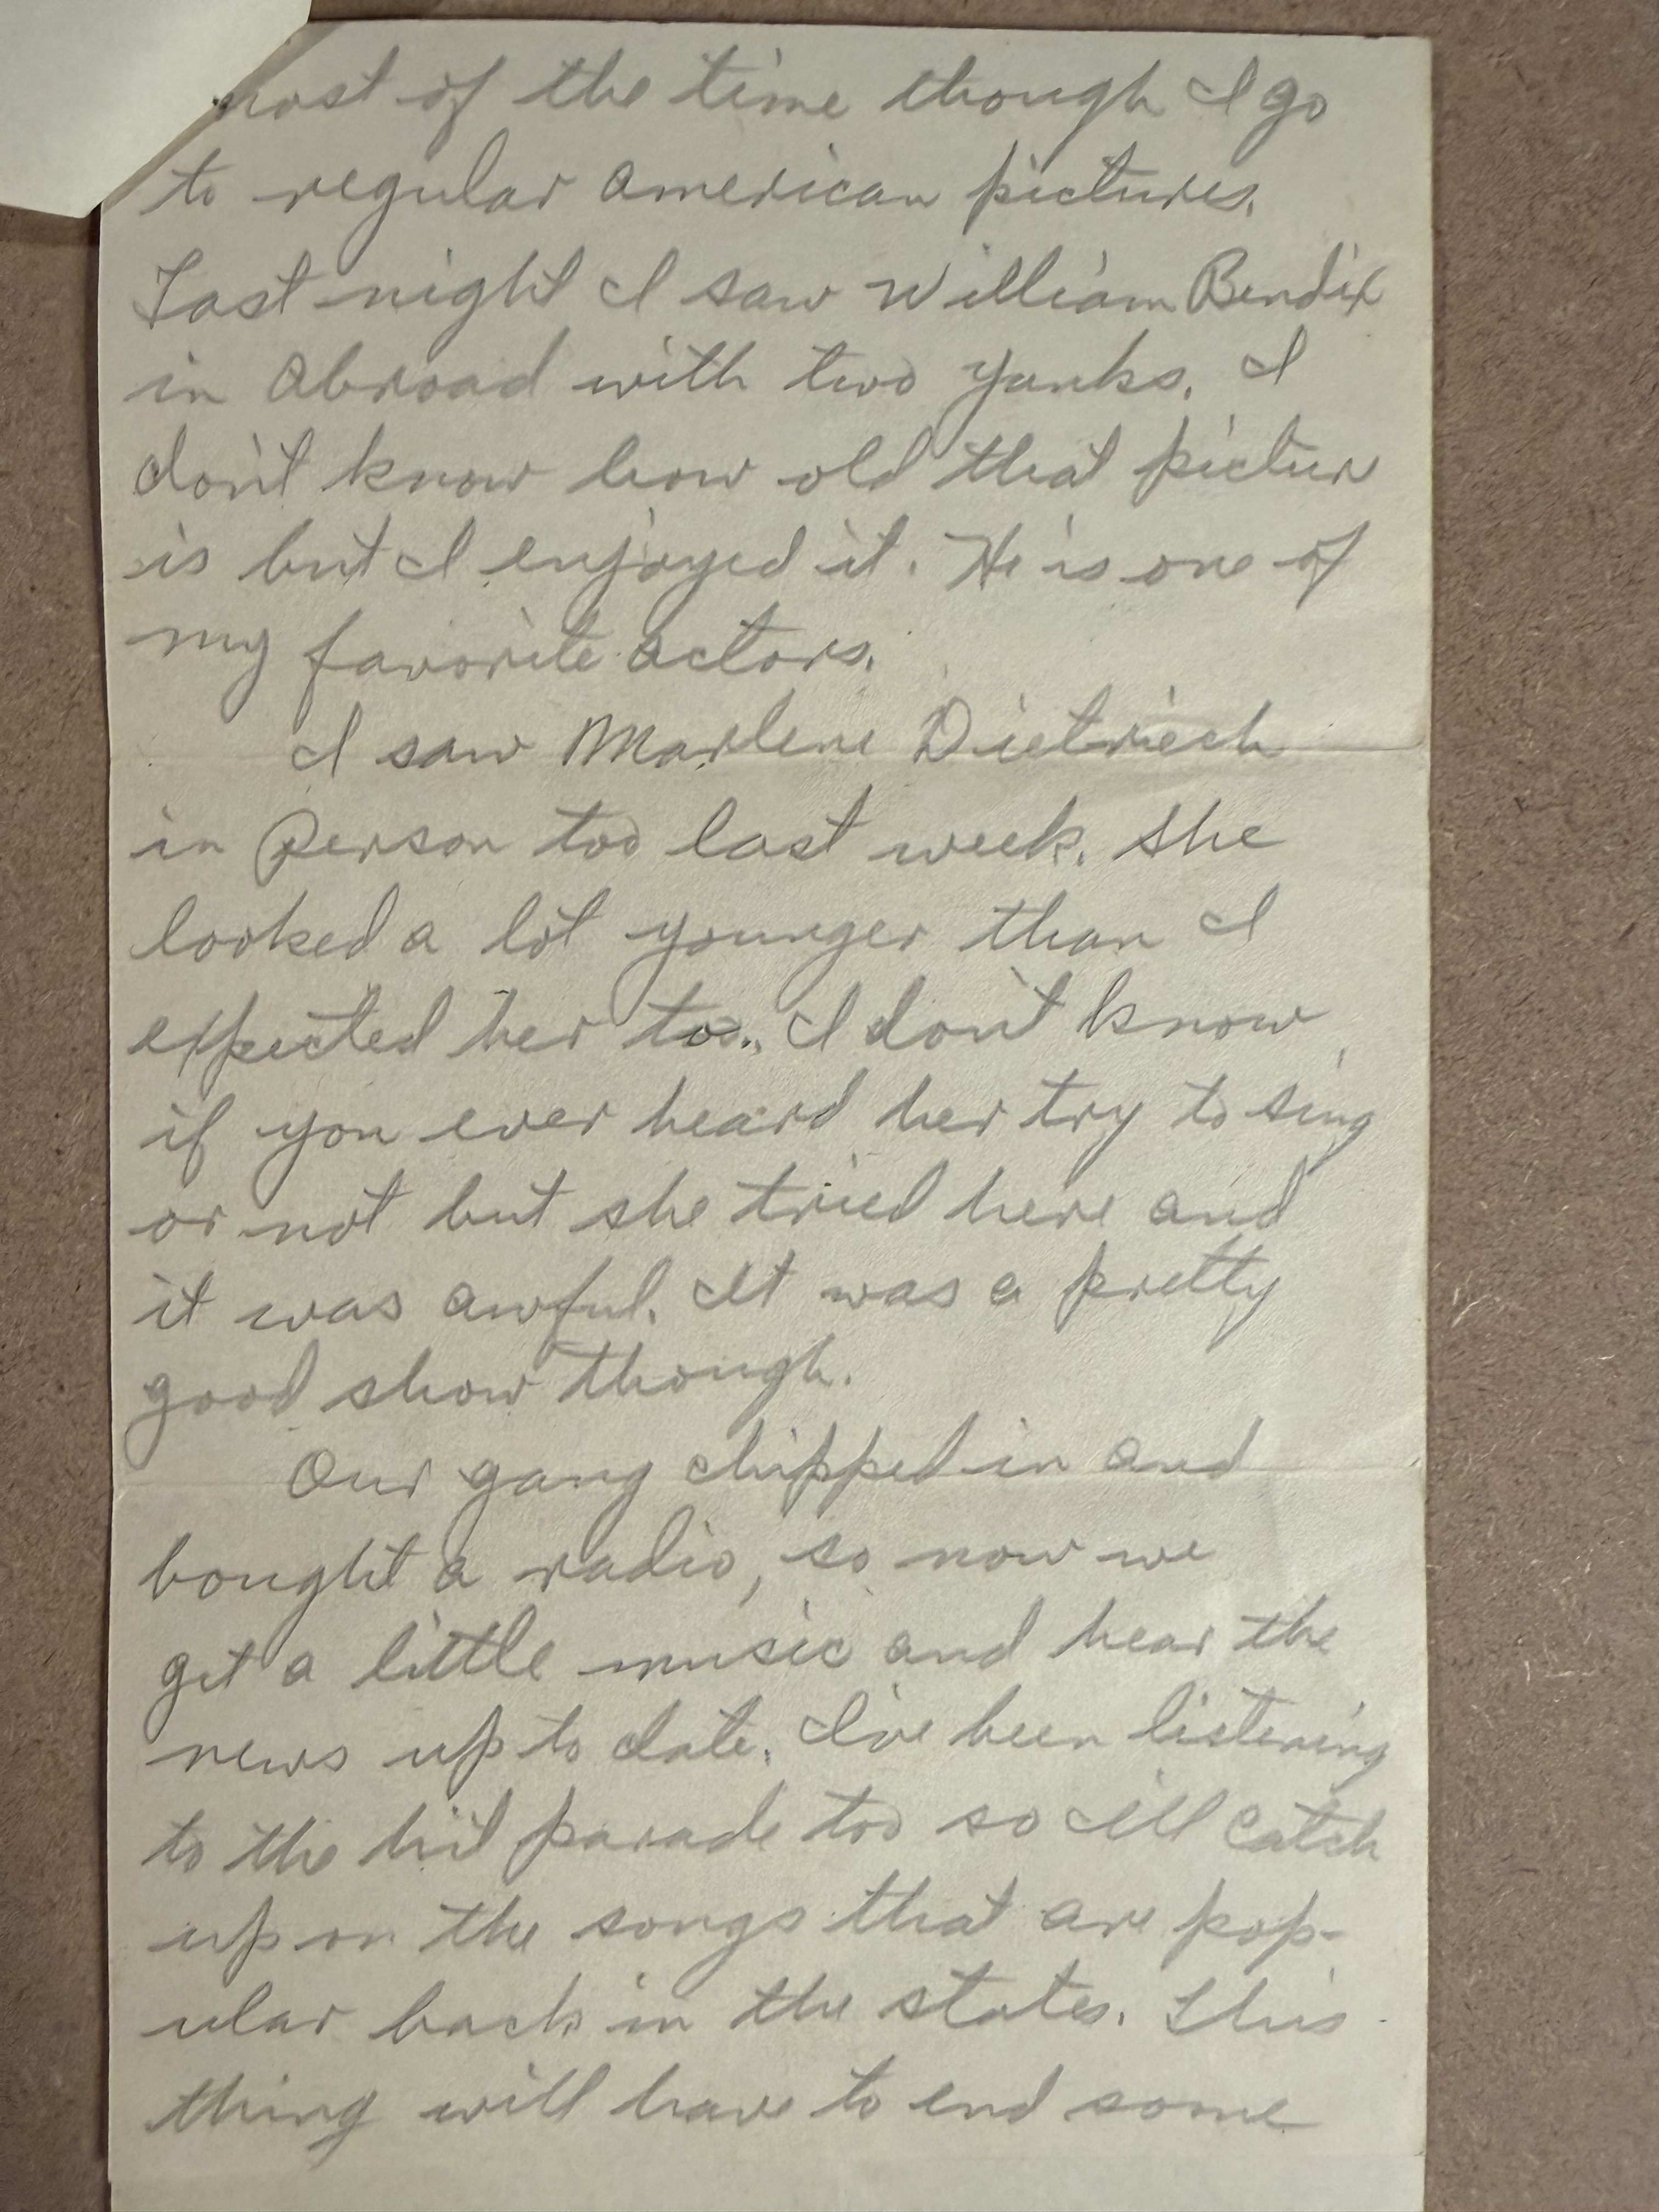 most of the time though I go
to regular American pictures.
Last night I saw William Bendix
in Abroad with two yanks. I
don't know how old that picture
is but I enjoyed it. He is one of
my favorite actors.
I saw Marlene Dietriech
in Person too last week. She
looked a lot younger than I
expected her to. I don't know
if you ever heard her try to sing
or not but she tried here and
it was awful. It was a pretty
good show though.
Our gang chipped in and
bought a radio, so now we
get a little music and hear the
news up to date. I've been listening
to the hit parade too so I'll catch
up on the songs that are pop-
ular back in the states. This
thing will have to end some